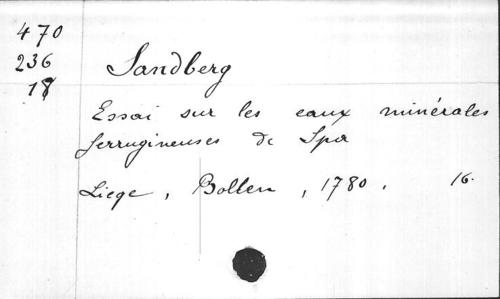 470
236
18
Sandberg
Essai sur les eaux minérales
ferrugineuses de Spa
Liege, Bollen, 1780. 16.